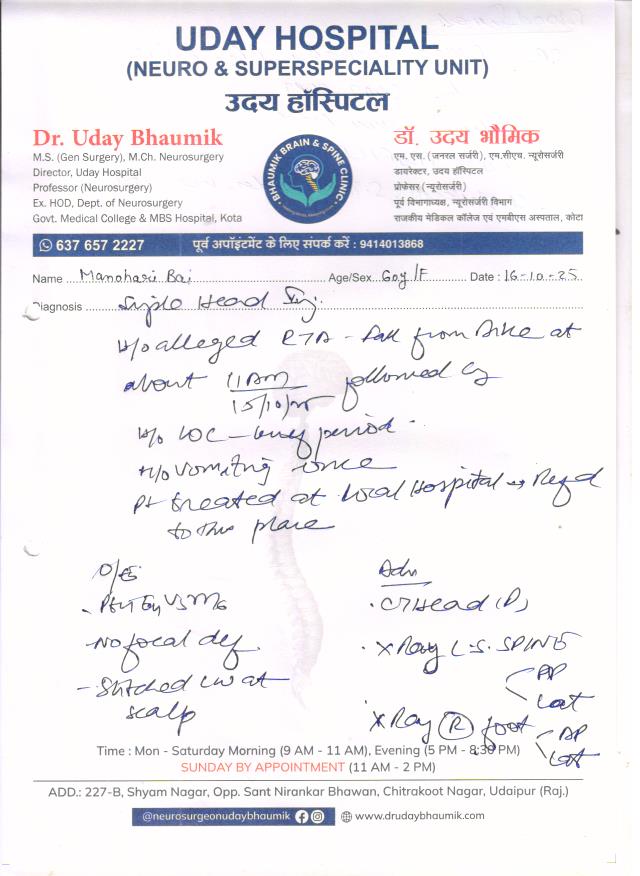 UDAY HOSPITAL
(NEURO & SUPERSPECIALITY UNIT)
उदय हॉस्पिटल
Dr. Uday Bhaumik
M.S. (Gen Surgery), M.Ch. Neurosurgery
Director, Uday Hospital
Professor (Neurosurgery)
Ex. HOD, Dept. of Neurosurgery
Govt. Medical College & MBS Hospital, Kota
BHAUMIK BRAIN & SPINE CLINIC
डॉ. उदय भौमिक
एम. एस. (जनरल सर्जरी), एम.सीएच. न्यूरोसर्जरी
डायरेक्टर, उदय हॉस्पिटल
प्रोफेसर (न्यूरोसर्जरी)
पूर्व विभागाध्यक्ष, न्यूरोसर्जरी विभाग
राजकीय मेडिकल कॉलेज एवं एमबीएस अस्पताल, कोटा
637 657 2227 पूर्व अपॉइंटमेंट के लिए संपर्क करें : 9414013868
Name Manohari Bai Age/Sex 60y/F Date : 16-10-25
Diagnosis Simple Head Inj.
H/o alleged RTA - fall from Bike at
about 11AM followed by
15/10/25
H/o LOC - period
H/o vomiting once
Pt treated at local Hospital → Refd
to this place
O/E
- No focal def.
- Stitched LW at
scalp
Adv
- CT Head (P)
- X Ray L.S. SPINE
AP
Lat
X Ray (R) foot
AP
Lat
Time : Mon - Saturday Morning (9 AM - 11 AM), Evening (5 PM - 8:30 PM)
SUNDAY BY APPOINTMENT (11 AM - 2 PM)
ADD.: 227-B, Shyam Nagar, Opp. Sant Nirankar Bhawan, Chitrakoot Nagar, Udaipur (Raj.)
@neurosurgeonudaybhaumik www.drudaybhaumik.com